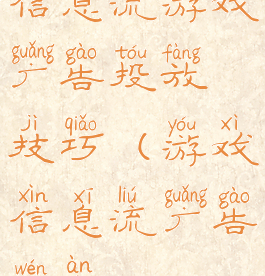 信息流游戏
guǎng gào tóu fàng
广告投放
jì qiǎo yóu xì
技巧（游戏
xìn xī liú guǎng gào
信息流广告
wén àn